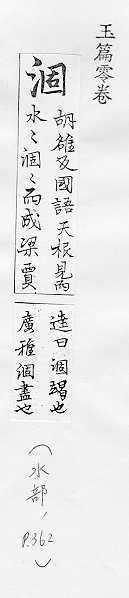 玉篇零卷
涸
胡雒反國語天根見而
水〻涸〻而成梁賈
逵曰涸竭也
廣雅涸盡也
（水部，P.362）